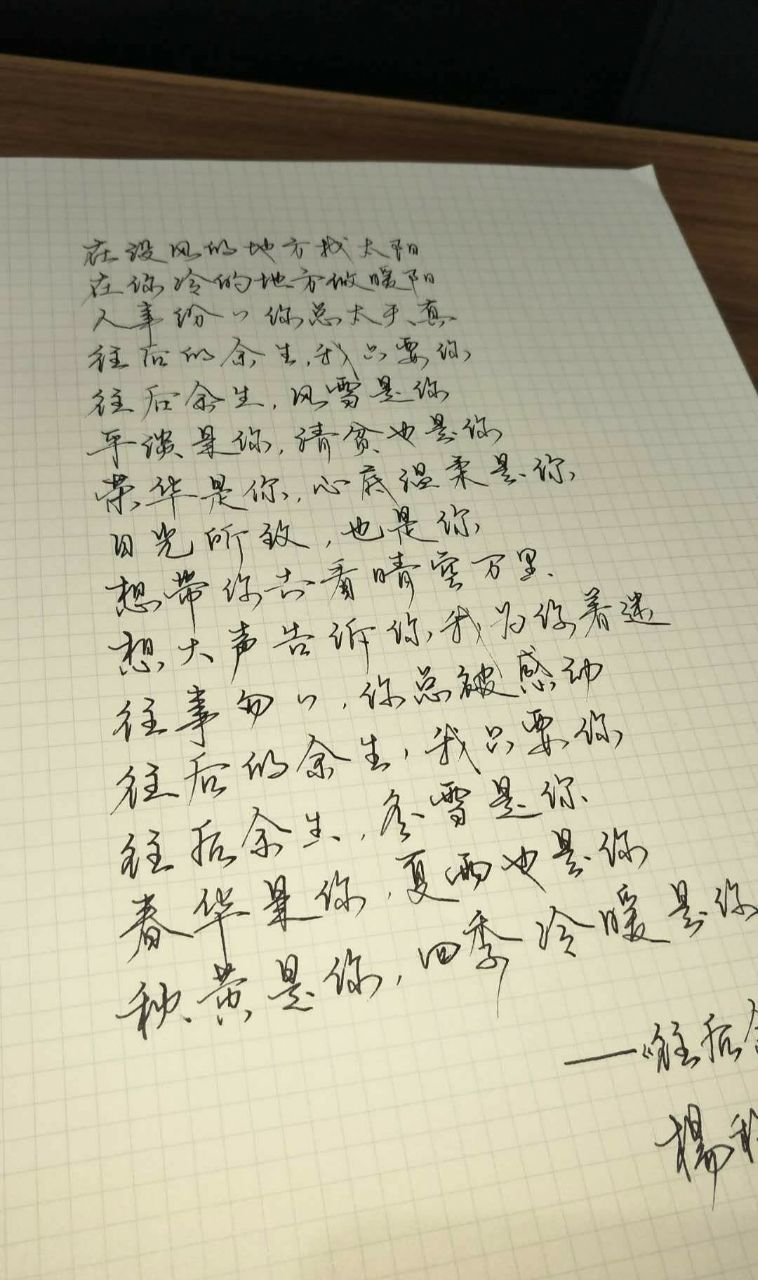 在没风的地方找太阳
在你冷的地方做暖阳
人事纷〃你总太天真
往后的余生,我只要你
往后余生,风雪是你
平淡是你,清贫也是你
荣华是你,心底温柔是你,
目光所致,也是你
想带你去看晴空万里.
想大声告诉你,我为你着迷
往事匆〃,你总被感动
往后的余生,我只要你
往后余生,冬雪是你
春华是你,夏雨也是你
秋黄是你,四季冷暖是你
——《往后余
杨